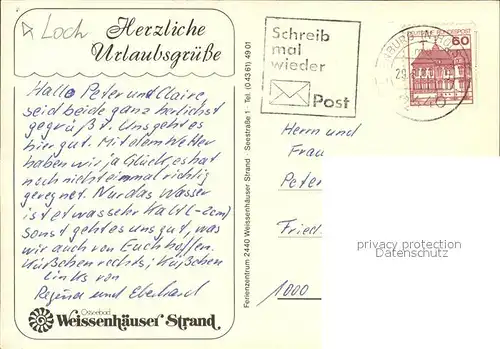 Loch
Herzliche
Urlaubsgrüße
Hallo Peter und Claire,
seid beide ganz herlichst
gegrüßt. Uns geht es
hier gut. Mit dem Wetter
haben wir ja Glück, es hat
noch nicht einmal richtig
geregnet. Nur das Wasser
ist etwas sehr kalt (-2cm)
sonst geht es uns gut, was
wir auch von Euch hoffen.
Küßchen rechts, Küßchen
links von
Regina und Eberhard
Ostseebad
Weissenhäuser Strand
Ferienzentrum 2440 Weissenhäuser Strand · Seestraße 1 · Tel. (0 43 61) 49 01
Schreib
mal
wieder
Post
60
Herrn und
Frau
Peter
Fried
1000
privacy protection
Datenschutz